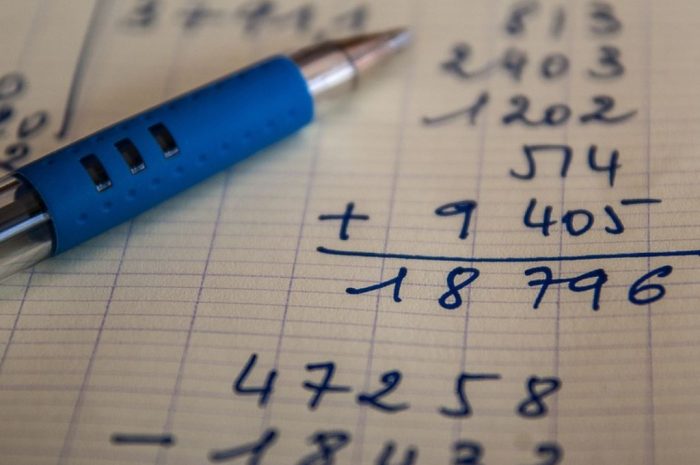 813
2403
1202
514
+ 9 405
18 796
47258